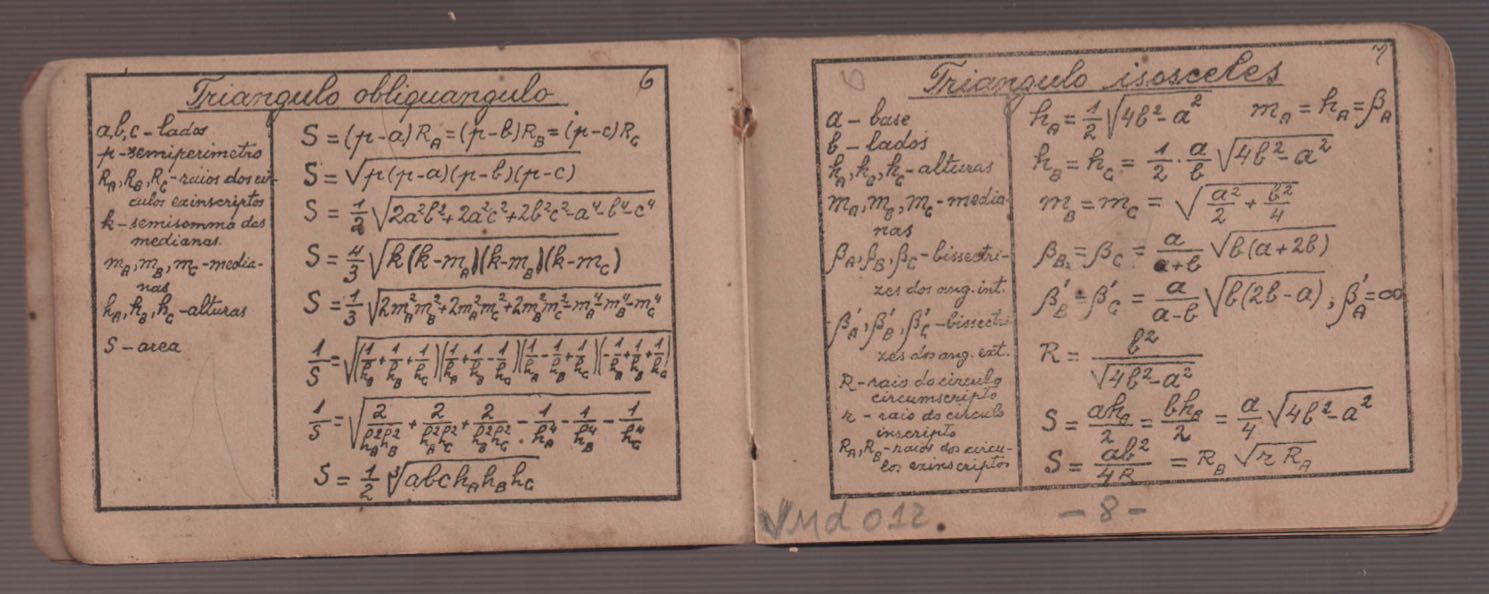 6
Triangulo obliquangulo
a,b,c - lados
p - semiperimetro
R_A, R_B, R_C - raios dos cir-
culos exinscriptos
k - semisomma das
medianas.
m_A, m_B, m_C - media-
nas
h_A, h_B, h_C - alturas
S - area
S = (p-a) R_A = (p-b) R_B = (p-c) R_C
S = √(p(p-a)(p-b)(p-c))
S = 1/2 √(2a²b²+2a²c²+2b²c²-a⁴-b⁴-c⁴)
S = 4/3 √(k(k-m_A)(k-m_B)(k-m_C))
S = 1/3 √(2m_A²m_B²+2m_A²m_C²+2m_B²m_C²-m_A⁴-m_B⁴-m_C⁴)
1/S = √((1/h_A+1/h_B+1/h_C)(1/h_A+1/h_B-1/h_C)(1/h_A-1/h_B+1/h_C)(-1/h_A+1/h_B+1/h_C))
1/S = √(2/(h_A²h_B²)+2/(h_A²h_C²)+2/(h_B²h_C²)-1/h_A⁴-1/h_B⁴-1/h_C⁴)
S = 1/2 ∛(abc h_A h_B h_C)
7
Triangulo isosceles
a - base
b - lados
h_A, h_B, h_C - alturas
m_A, m_B, m_C - media-
nas
β_A, β_B, β_C - bissectri-
zes dos ang. int.
β'_A, β'_B, β'_C - bissectri-
zes dos ang. ext.
R - raio do circulo
circumscripto
r - raio do circulo
inscripto
R_A, R_B - raios dos circu-
los exinscriptos
h_A = 1/2 √(4b²-a²) m_A = h_A = β_A
h_B = h_C = 1/2 · a/b √(4b²-a²)
m_B = m_C = √(a²/2 + b²/4)
β_B = β_C = a/(a+b) √(b(a+2b))
β'_B = β'_C = a/(a-b) √(b(2b-a)); β'_A = ∞
R = b²/√(4b²-a²)
S = ah_A/2 = bh_B/2 = a/4 √(4b²-a²)
S = ab²/4R = R_B √(r R_A)
- 8 -